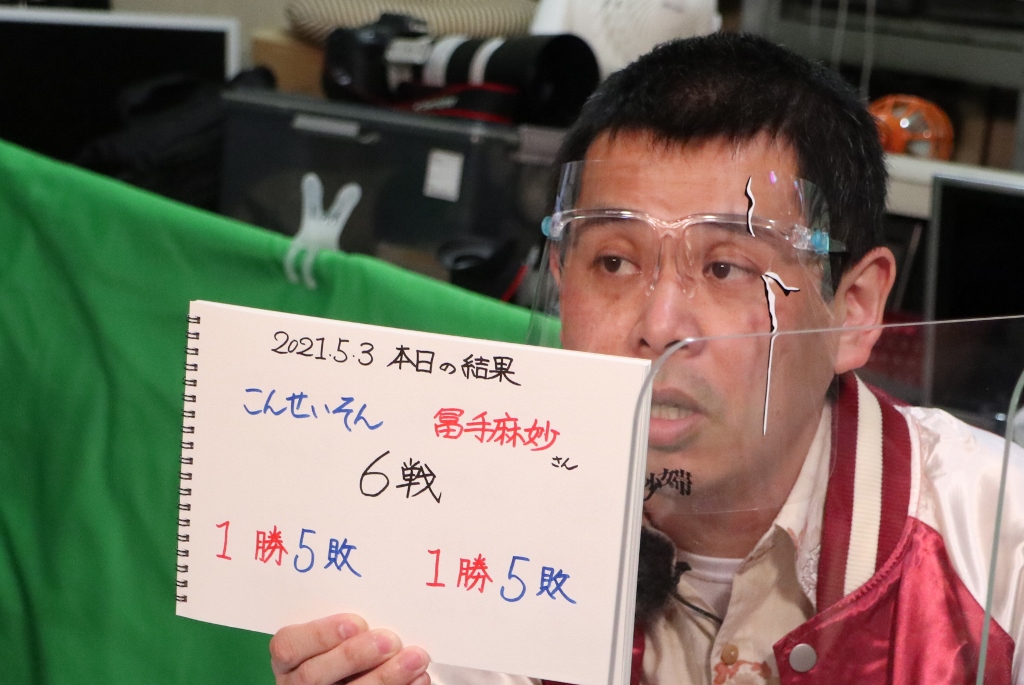 2021.5.3 本日の結果
こんせいそん 冨手麻妙さん
6戦
1勝5敗 1勝5敗